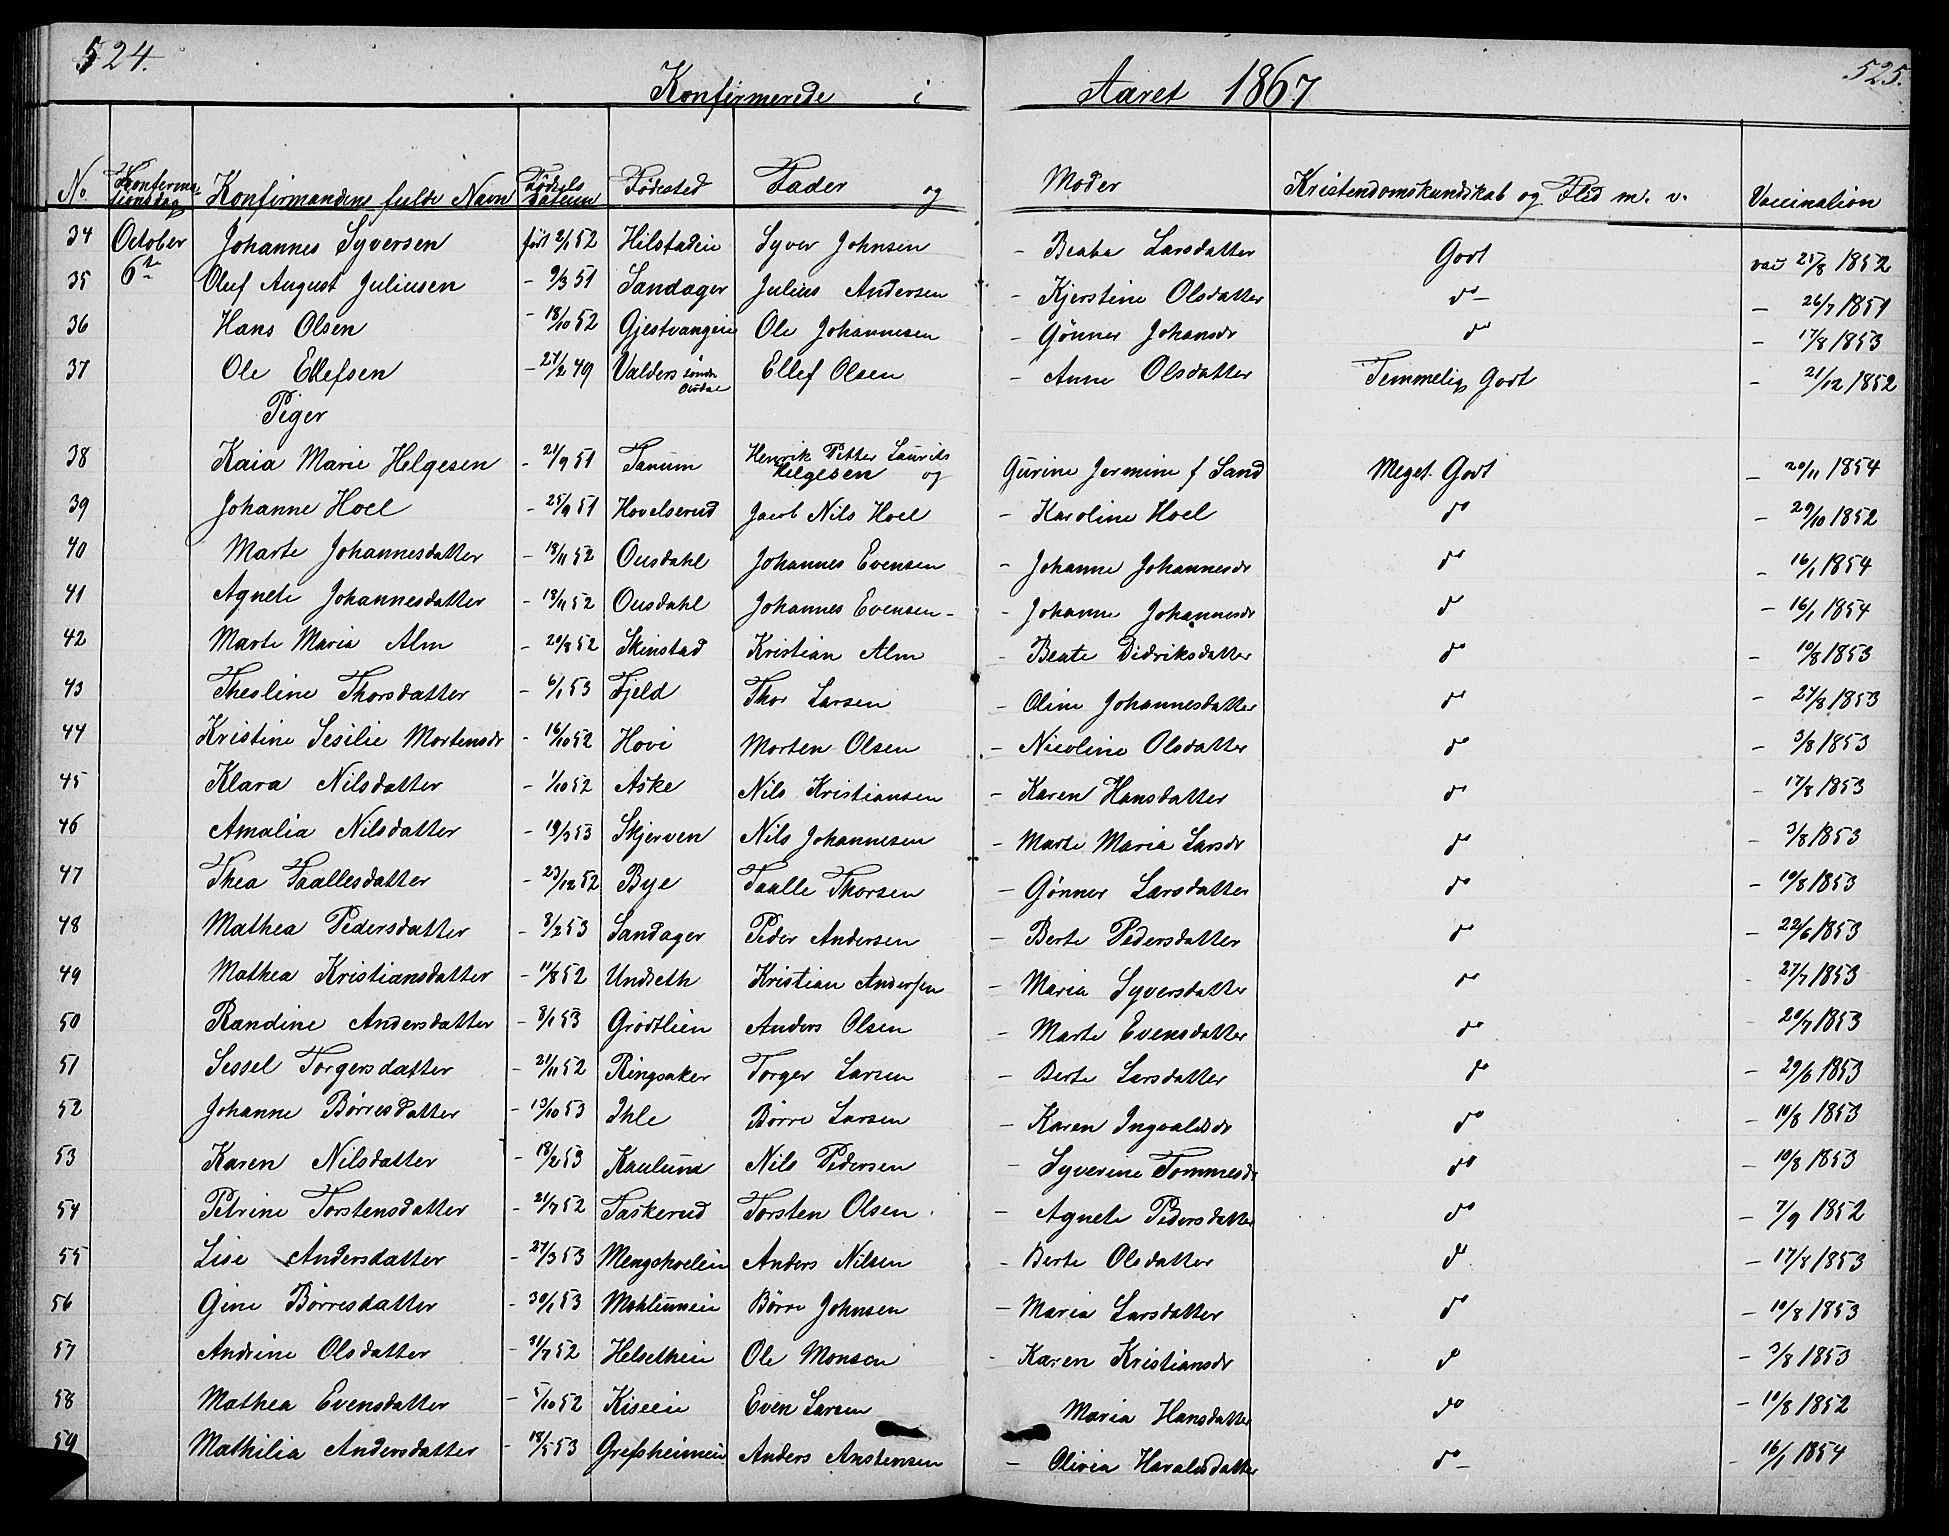 524.
525.
Konfirmerede i Aaret 1867
No. Konfirma-tionsdag Konfirmandens fulde Navn Fødsels datum Fødested Fader og Moder Kristendomskundskab og Flid m. v. Vaccination
34 October 6te Johannes Syversen født 2/1 52 Hilstadeie Syver Johnsen - Beaba Larsdatter Godt vac 25/8 1852
35 Oluf August Juliusen - 9/3 51 Sandager Julius Andersen - Kjerstine Olsdatter do - - 26/7 1851
36 Hans Olsen - 18/10 52 Gjestvangeie Ole Johannesen - Gønner Johansdr do - 17/8 1853
37 Ole Ellefsen - 27/2 49 Valders søndr Ourdal Ellef Olsen - Anne Olsdatter Temmelig Godt - 21/12 1852
Piger
38 Kaia Marie Helgesen - 21/9 51 Tanum Henrik Petter Laurits Helgesen og Gurine Jermine f Sand Meget Godt - 20/11 1854
39 Johanne Hoel - 25/9 51 Hovelserud Jacob Nils Hoel - Karoline Hoel do - 29/10 1852
40 Marte Johannesdatter - 18/11 52 Ousdahl Johannes Evensen - Johanne Johannesdr do - 16/1 1854
41 Agnete Johannesdatter - 18/11 52 Ousdahl Johannes Evensen - - Johanne Johannesdr do - 16/1 1854
42 Marte Maria Alm - 20/8 52 Skinstad Kristian Alm - Beate Didriksdatter do - 10/8 1853
43 Thesline Thorsdatter - 6/1 53 Fjeld Thor Larsen - Oline Johannesdatter do - 27/8 1853
44 Kristine Sesilie Mortensdr - 16/10 52 Hovi Morten Olsen - Nicoline Olsdatter do - 3/8 1853
45 Klara Nilsdatter - 1/10 52 Aske Nils Kristiansen - Karen Hansdatter do - 17/8 1853
46 Amalia Nilsdatter - 19/3 53 Skjerven Nils Johannesen - Marte Maria Larsdr do - 3/8 1853
47 Thea Taallesdatter - 23/12 52 Bye Taalle Thorsen - Gønner Larsdatter do - 10/8 1853
48 Mathea Pedersdatter - 8/2 53 Sandager Peder Andersen - Berte Pedersdatter do - 22/6 1853
49 Mathea Kristiansdatter - 11/8 52 Undseth Kristian Andersen - Maria Syversdatter do - 27/7 1853
50 Randine Andersdatter - 8/1 53 Grødtlien Anders Olsen - Marte Evensdatter do - 20/7 1853
51 Sessel Torgersdatter - 21/11 52 Ringsaker Torger Larsen - Berte Larsdatter do - 29/6 1853
52 Johanne Børresdatter - 13/10 53 Ihle Børre Larsen - Karen Ingvaldsdr do - 10/8 1853
53 Karen Nilsdatter - 18/2 53 Kaulund Nils Pedersen - Syverine Tommesdr do - 10/8 1853
54 Petrine Torstensdatter - 21/7 52 Taskerud Torsten Olsen - Agnete Pedersdatter do - 7/9 1852
55 Lise Andersdatter - 27/3 53 Mengshoeleie Anders Nilsen - Berte Olsdatter do - 17/8 1853
56 Gine Børresdatter - 30/1 53 Mahlumeie Børre Johnsen - Maria Larsdatter do - 10/8 1853
57 Andrine Olsdatter - 31/7 52 Helsetheie Ole Monsen - Karen Kristiansdr do - 3/8 1853
58 Mathea Evensdatter - 5/10 52 Kiseeie Even Larsen Maria Hansdatter do - 11/8 1852
59 Mathilia Andersdatter - 18/5 53 Grefsheimeie Anders Anstensen - Olivia Haraldsdatter do - - 16/1 1854